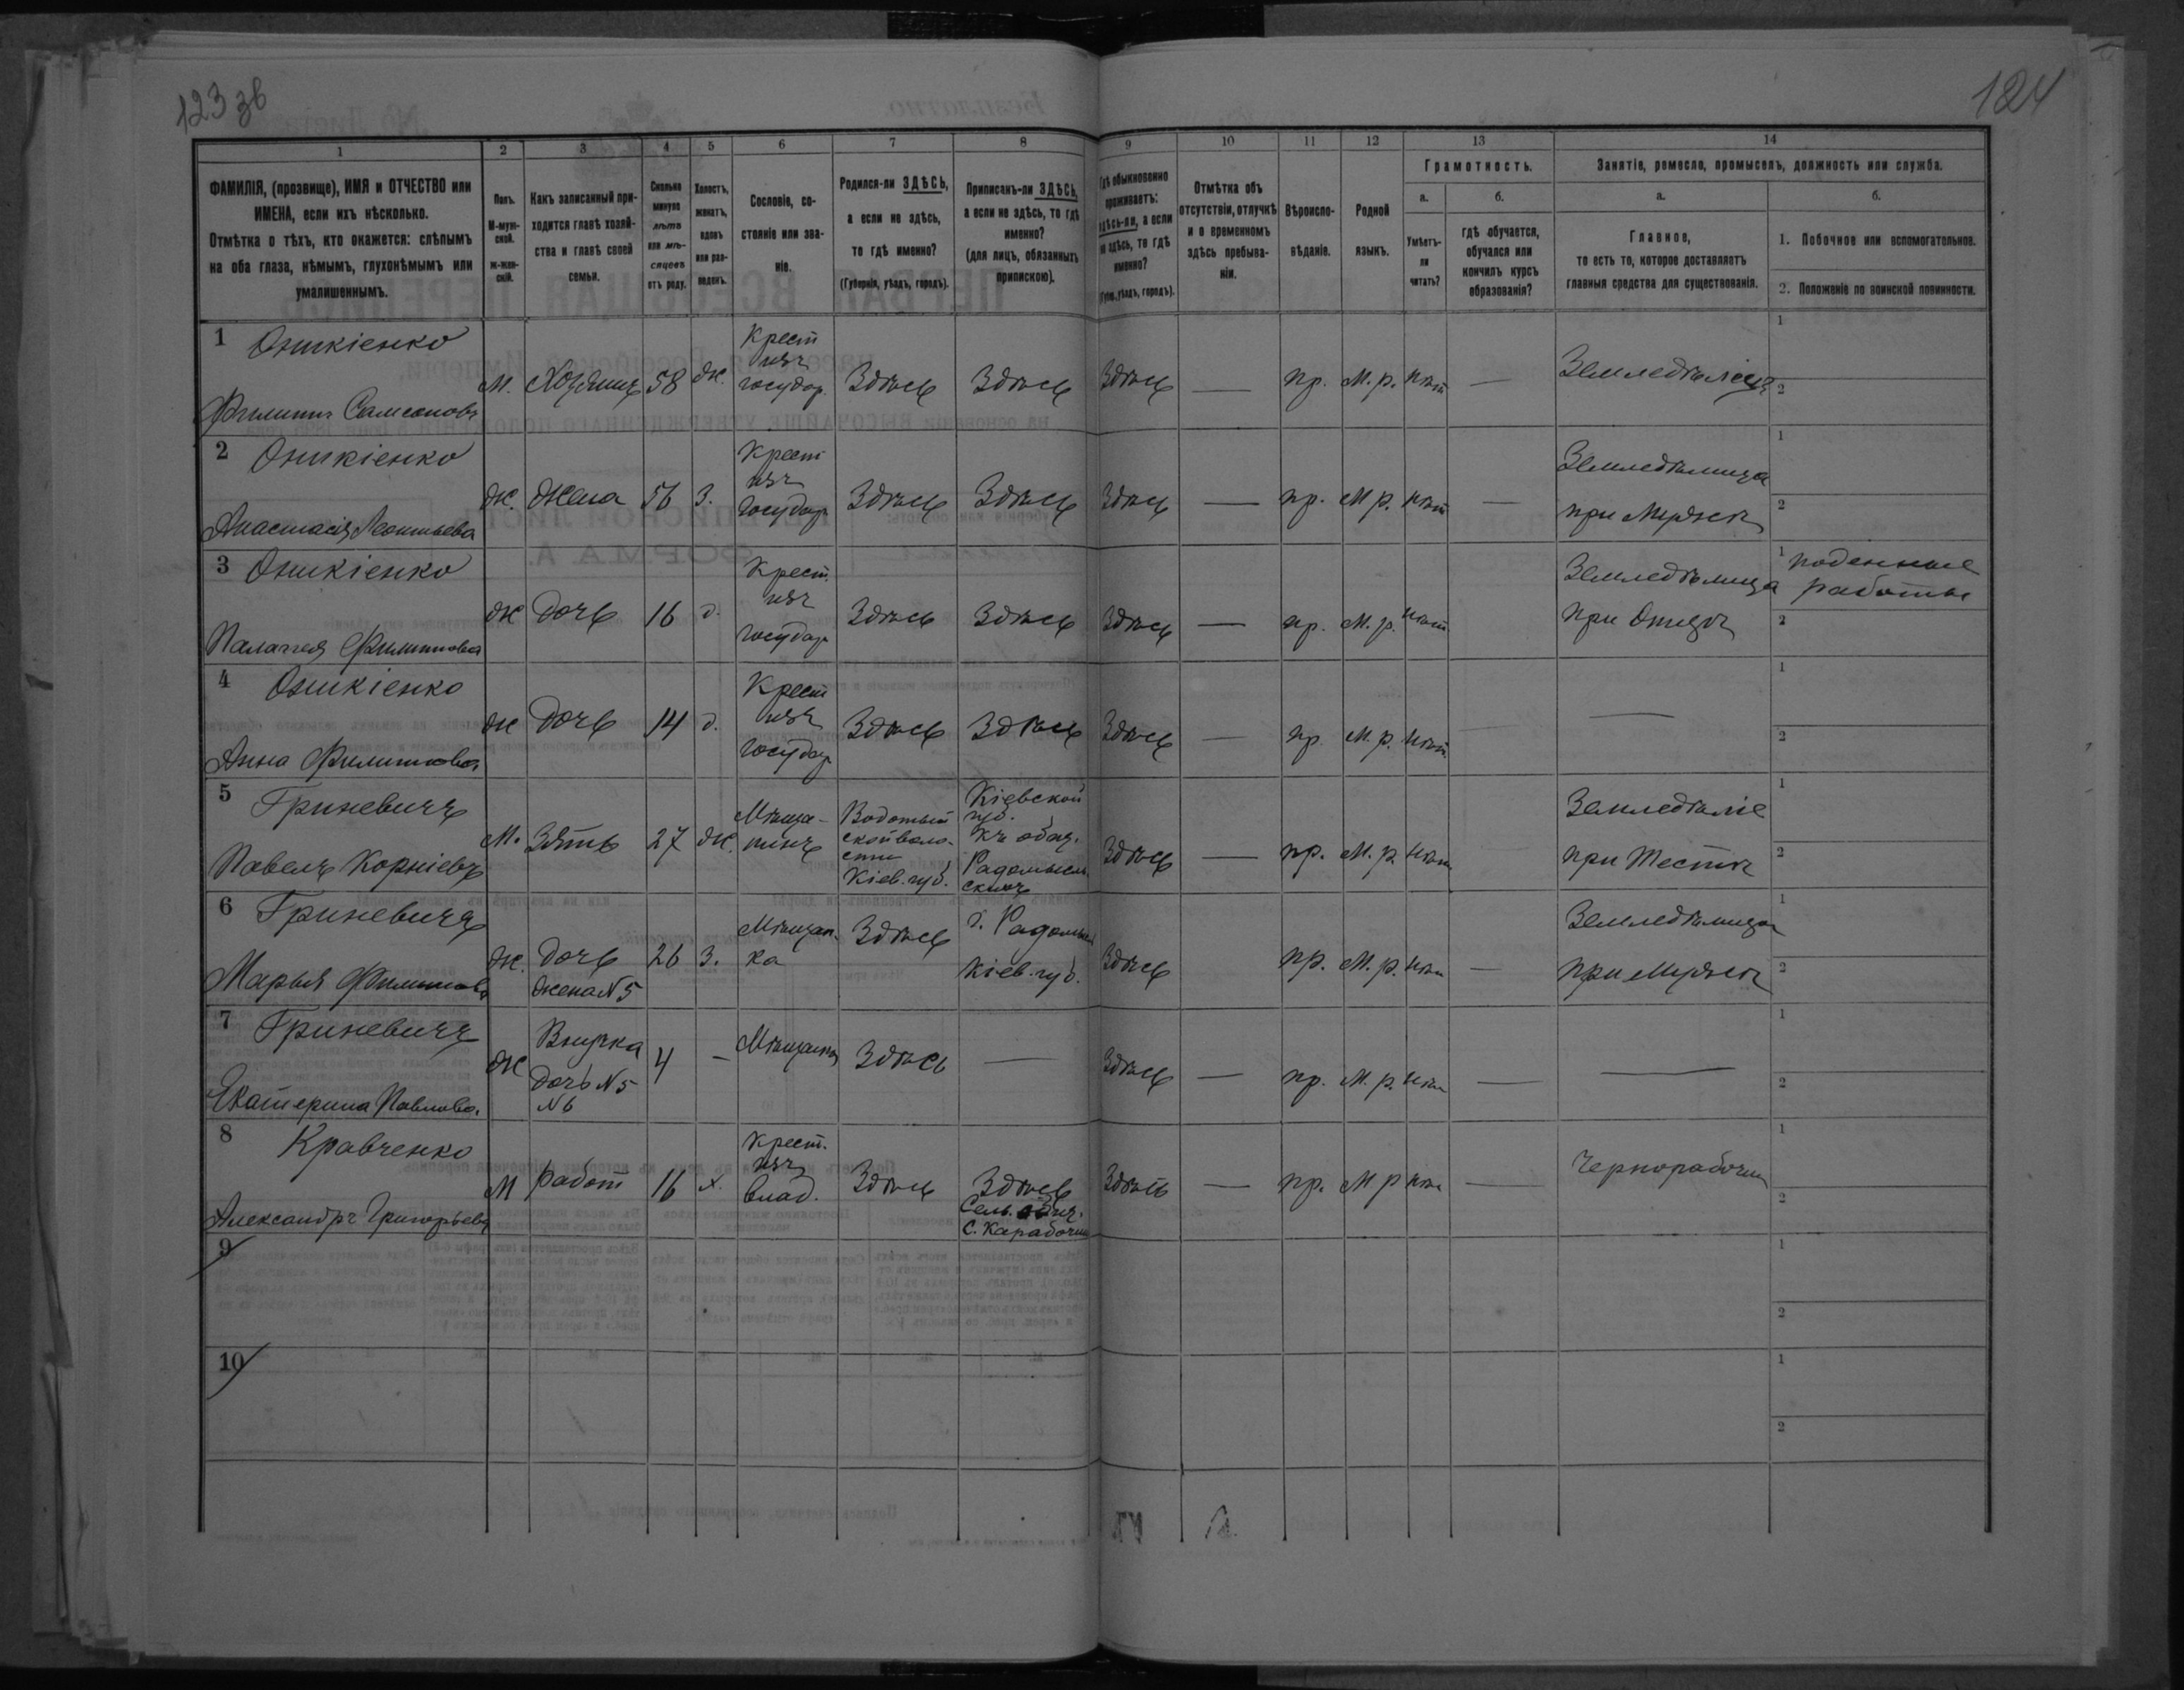 123 зв
124
1
2
3
4
5
6
7
8
9
10
11
12
13
14
ФАМИЛІЯ, (прозвище), ИМЯ и ОТЧЕСТВО или
ИМЕНА, если ихъ нѣсколько.
Отмѣтка о тѣхъ, кто окажется: слѣпымъ
на оба глаза, нѣмымъ, глухонѣмымъ или
умалишеннымъ.
Полъ.
М-муж-
ской.
ж-жен-
скій.
Какъ записанный при-
ходится главѣ хозяй-
ства и главѣ своей
семьи.
Сколько
минуло
лѣтъ
или мѣ-
сяцевъ
отъ роду.
Холостъ,
женатъ,
вдовъ
или раз-
веденъ.
Сословіе, со-
стояніе или зва-
ніе.
Родился-ли ЗДѢСЬ,
а если не здѣсь,
то гдѣ именно?
(Губернія, уѣздъ, городъ).
Приписанъ-ли ЗДѢСЬ,
а если не здѣсь, то гдѣ
именно?
(для лицъ, обязанныхъ
припискою).
Гдѣ обыкновенно
проживаетъ:
здѣсь-ли, а если
не здѣсь, то гдѣ
именно?
(Губ., уѣздъ, городъ).
Отмѣтка объ
отсутствіи, отлучкѣ
и о временномъ
здѣсь пребыва-
ніи.
Вѣроиспо-
вѣданіе.
Родной
языкъ.
Грамотность.
а.
Умѣетъ-
ли
читать?
б.
гдѣ обучается,
обучался или
кончилъ курсъ
образованія?
Занятіе, ремесло, промыселъ, должность или служба.
а.
Главное,
то есть то, которое доставляетъ
главныя средства для существованія.
б.
1. Побочное или вспомогательное.
2. Положеніе по воинской повинности.
1 Оникіенко
Филиппъ Самсоновъ
М. Хозяинъ 58 ж.
Крест
изъ
государ.
Здѣсь Здѣсь Здѣсь — пр. М. р. нѣт —
1
2
2 Оникіенко
Анастасія Леонтьева
ж. жена 56 З.
Крест
изъ
государ
Здѣсь Здѣсь Здѣсь — пр. М р. нѣт —
Земледѣлица
при Мужѣ
1
2
3 Оникіенко
Палагея Филиппова
ж дочь 16 д.
Крест.
изъ
государ
Здѣсь Здѣсь Здѣсь — пр. М. р. нѣт.
Земледѣлица
при Отцѣ
1 поденные
работы
2
4 Оникіенко
Анна Филиппова
ж дочь 14 д.
Крест
изъ
государ
Здѣсь Здѣсь Здѣсь — пр М. р. нѣт. —
1
2
5 Гриневичъ
Павелъ Корніевъ
М. Зять 27 ж.
Мѣща-
нинъ
ской воло-
сти
Кіев. губ.
Кіевской
губ.
къ общ.
Радомысль
скому
Здѣсь — пр. М. р. нѣт
Земледѣліе
при Тестѣ
1
2
6 Гриневичъ
Марья Филиппова
ж. дочь
жена N 5
26 З.
Мѣщан-
ка
Здѣсь
г. Радомысл
Кіев. губ.
Здѣсь пр. М. р. нѣт —
Земледѣлица
при Мужѣ
1
2
7 Гриневичъ
Екатерина Павлова.
ж
Внучка
дочь N 5
N 6
4 —
Мѣщанка
Здѣсь — Здѣсь — пр. М. р. нѣт — —
1
2
8 Кравченко
Александръ Григорьевъ
М работ 16 х.
Крест.
изъ
влад.
Здѣсь
Здѣсь
Сель. общ.
С. Карабочин
Здѣсь — пр. М р нѣт —
Чернорабочій
1
2
9
1
2
10
1
2